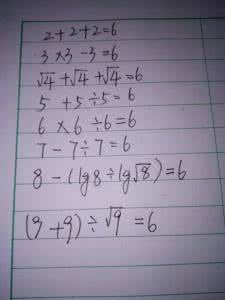 2+2+2=6
3×3-3=6
√4+√4+√4=6
5+5÷5=6
6×6÷6=6
7-7÷7=6
8-(lg8÷lg√8)=6
(9+9)÷√9=6